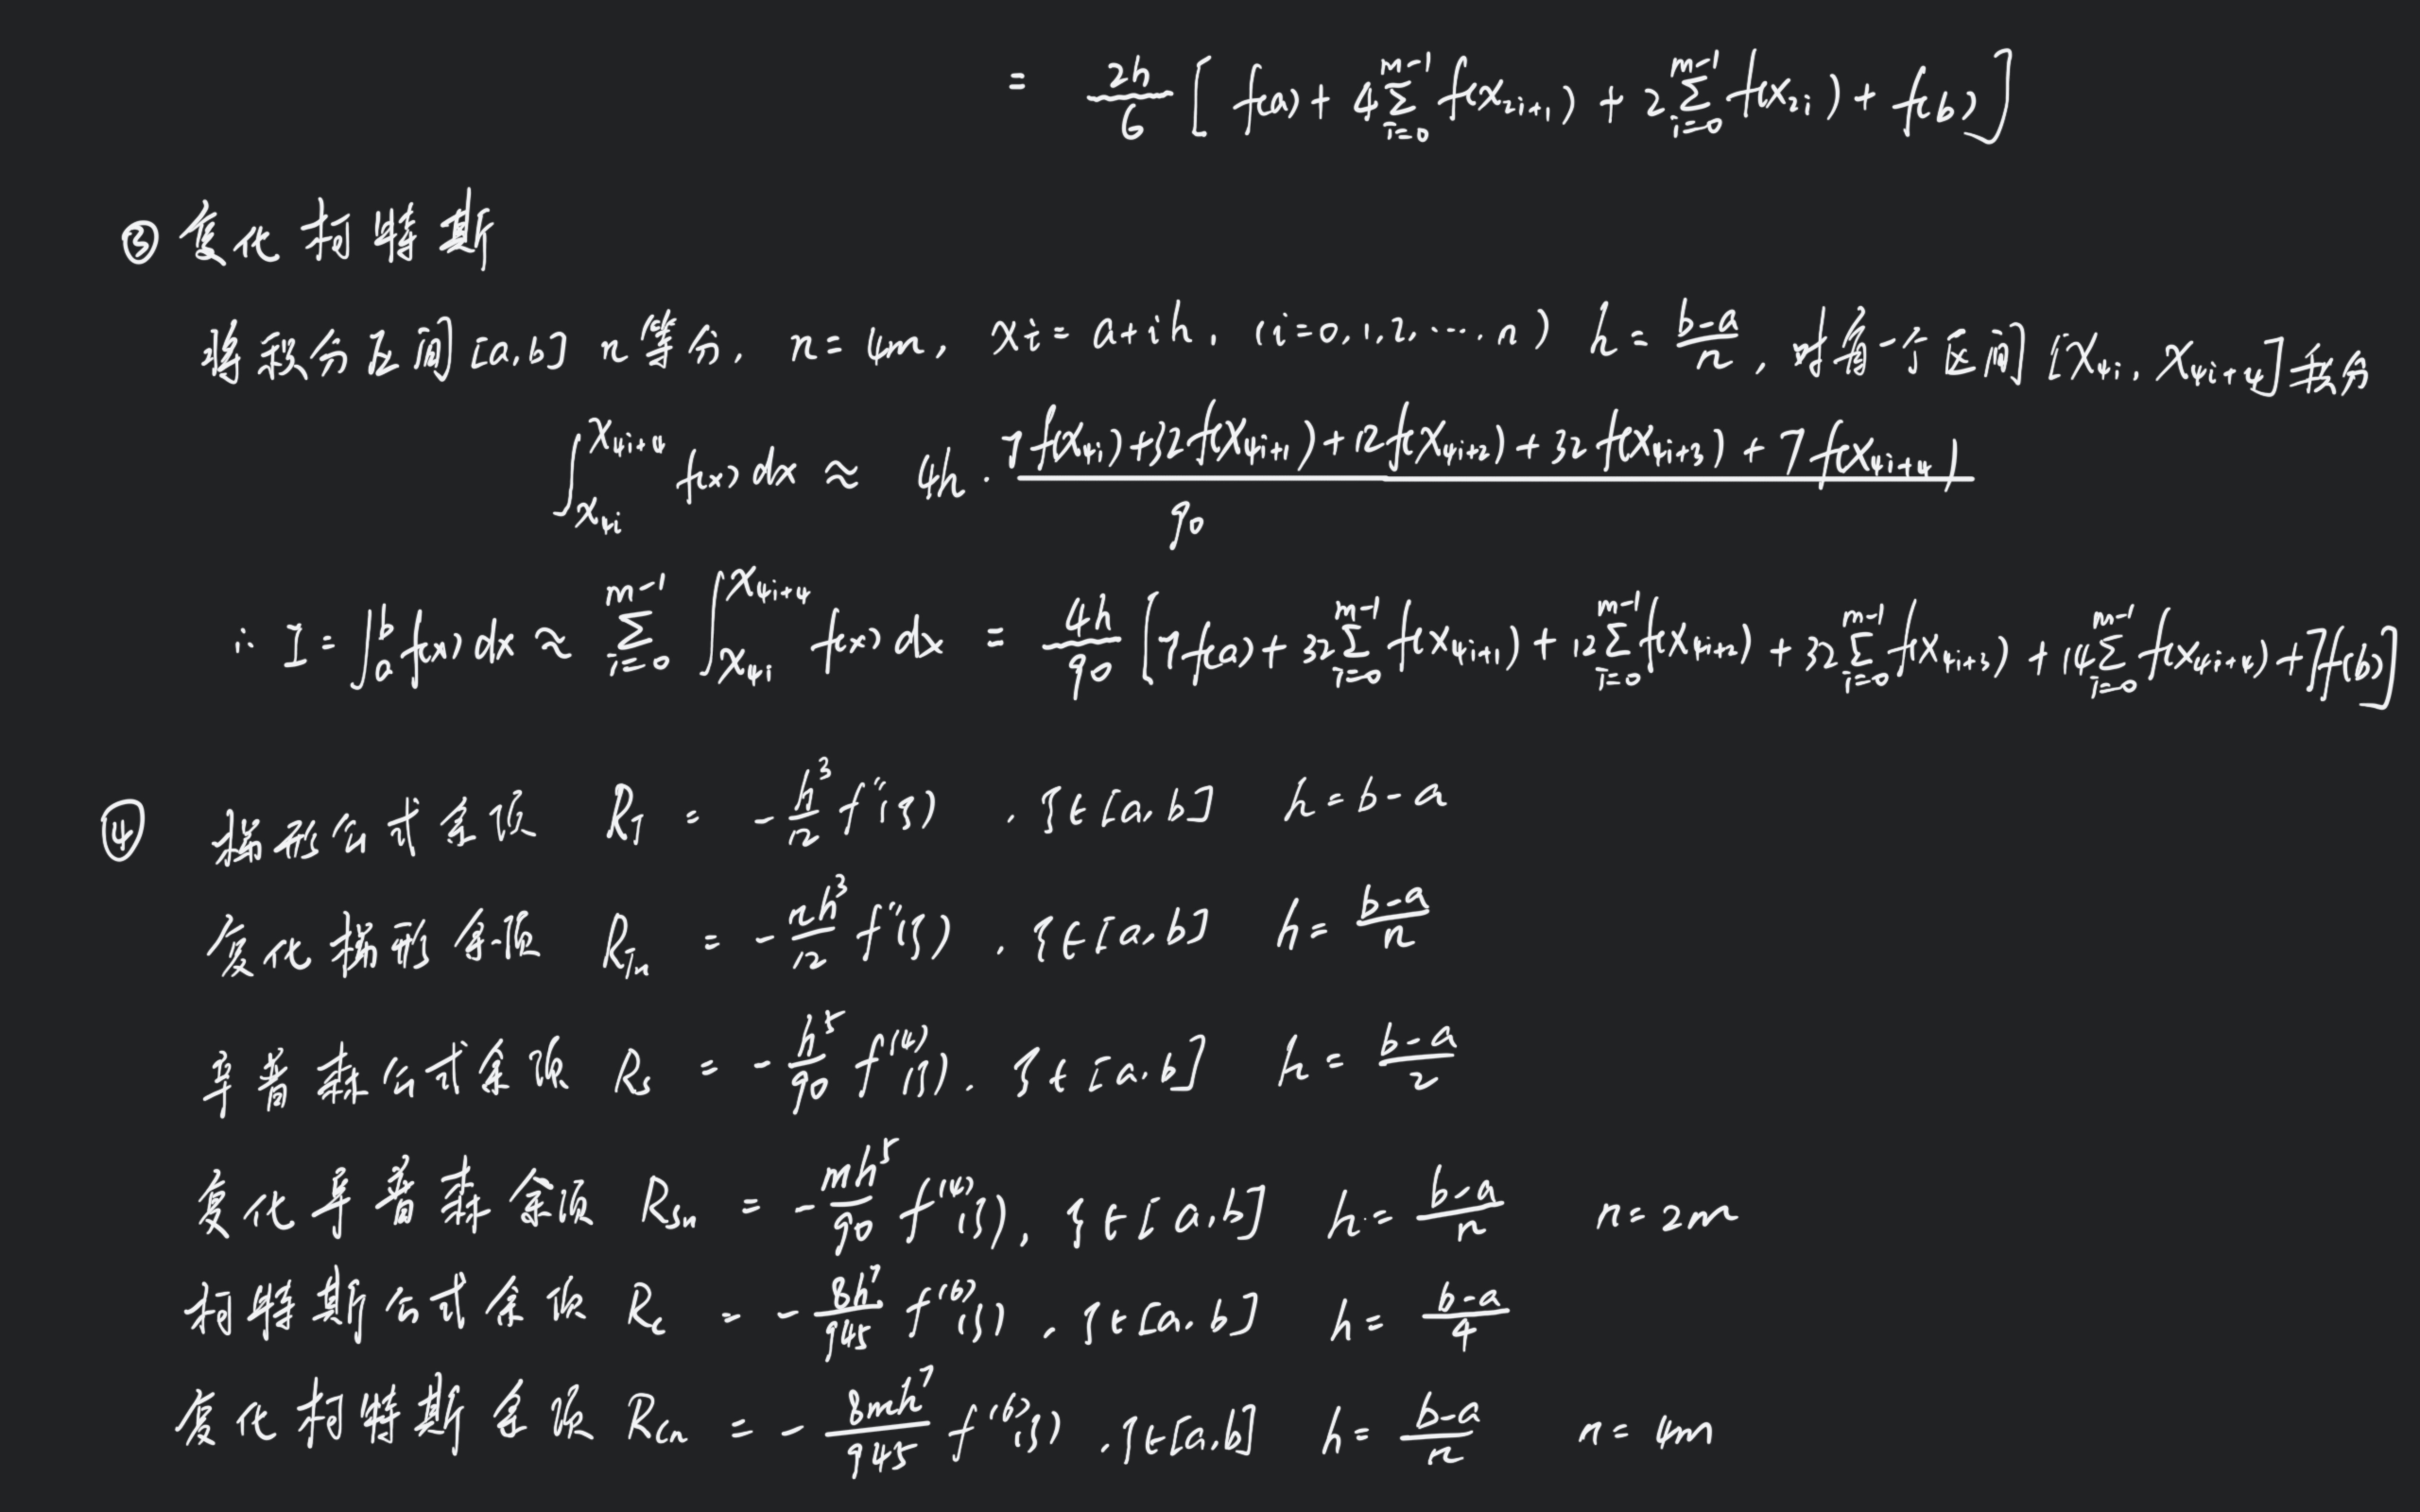 = 2h/6 [ f(a) + 4∑_{i=0}^{m-1} f(x_{2i+1}) + 2∑_{i=0}^{m-1} f(x_{2i}) + f(b) ]
③ 复化柯特斯
将积分区间[a,b] n等分, n=4m, xi=a+ih, (i=0,1,2,…,n) h=(b-a)/n, 对每一个区间[x_{4i}, x_{4i+4}]积分
∫_{x_{4i}}^{x_{4i+4}} f(x)dx ≈ 4h · (7f(x_{4i})+32f(x_{4i+1})+12f(x_{4i+2})+32f(x_{4i+3})+7f(x_{4i+4}))/90
∴ I = ∫_a^b f(x)dx ≈ ∑_{i=0}^{m-1} ∫_{x_{4i}}^{x_{4i+4}} f(x)dx = 4h/90 [7f(a)+32∑_{i=0}^{m-1} f(x_{4i+1})+12∑_{i=0}^{m-1} f(x_{4i+2})+32∑_{i=0}^{m-1} f(x_{4i+3})+14∑_{i=0}^{m-1} f(x_{4i+4})+7f(b)]
④ 梯形公式余项 R_T = -h³/12 f''(ξ), ξ∈[a,b] h=b-a
复化梯形余项 R_{Tn} = -nh³/12 f''(ξ), ξ∈[a,b] h=(b-a)/n
辛普森公式余项 R_S = -h⁵/90 f⁽⁴⁾(ξ), ξ∈[a,b] h=(b-a)/2
复化辛普森余项 R_{Sn} = -mh⁵/90 f⁽⁴⁾(ξ), ξ∈[a,b] h=(b-a)/n n=2m
柯特斯公式余项 R_C = -8h⁷/945 f⁽⁶⁾(ξ), ξ∈[a,b] h=(b-a)/4
复化柯特斯余项 R_{Cn} = -8mh⁷/945 f⁽⁶⁾(ξ), ξ∈[a,b] h=(b-a)/n n=4m